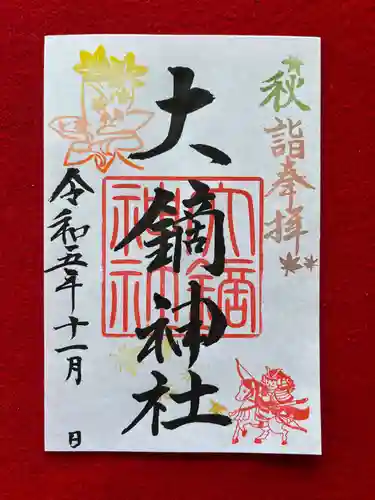 秋詣奉拝
大鏑神社
大鏑神社
令和五年十一月 日